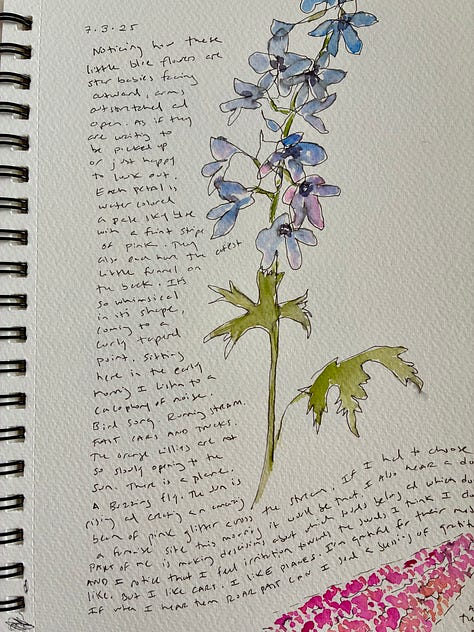 7.3.25
Noticing how these
little blue flowers are
star babies facing
outward, arms
outstretched and
open. As if they
are waiting to
be picked up
or just happy
to hurk out.
Each petal is
water colored
a pale sky blue
with a faint stripe
of pink. They
also even have the cutest
little funnel on
the back. It's
so whimsical
in it's shape,
coming to a
curly tapered
point. Sitting
here in the early
morning I listen to a
cacophony of noise.
Bird song. Running stream.
FAST CARS AND TRUCKS.
The orange lillies are not
so slowly opening to the
sun. There is a plane.
A Buzzing fly. The sun is
rising and creating an amazing
beam of pink glitter across the stream. If I had to choose
a favorite site this morning it would be that. I also hear a
Part of me is making decisions about which sounds belong and which do
AND I notice that I feel irritation towards the sounds I think I
like. But I like CARS. I LIKE PLANES. I'm grateful for their
If when I hear them ROAR PAST CAN I send a of